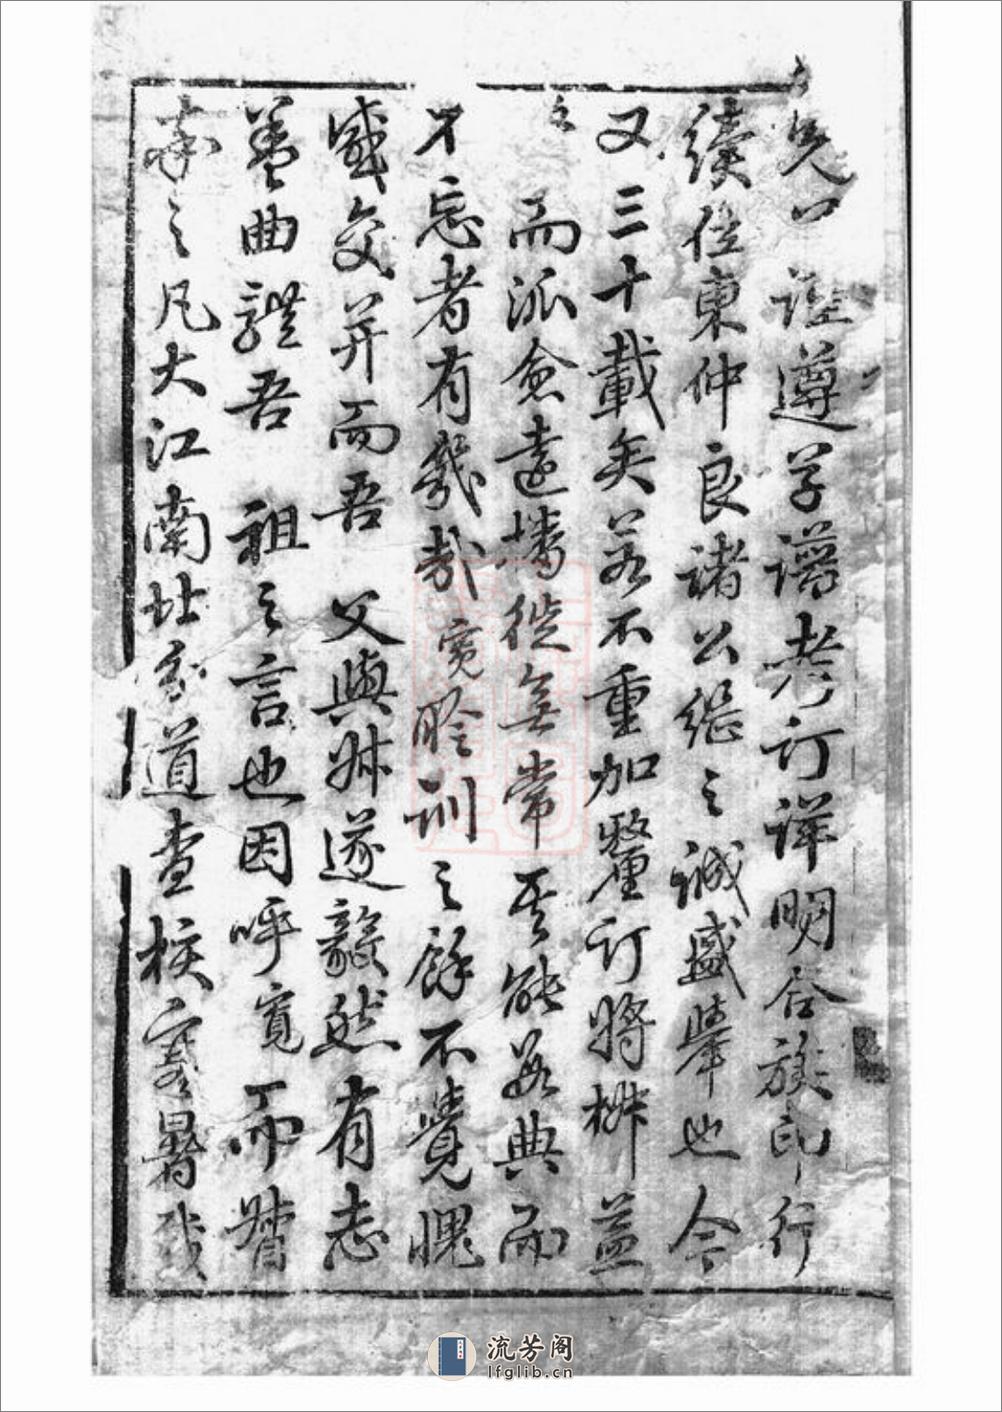 兄 謹遵孚譜考訂詳明合族印行
續位東仲良諸公繼之誠盛舉也今
又三十載矣若不重加釐訂將椒益
而派愈遠播徙無常其能無典而
不忘者有幾哉寛聆訓之餘不覺愧
感交并而吾 父與叔遂毅然有志
並曲體吾 祖之言也因呼寛而贊
之凡大江南北分道查核寒暑
流芳阁
lfglib.cn